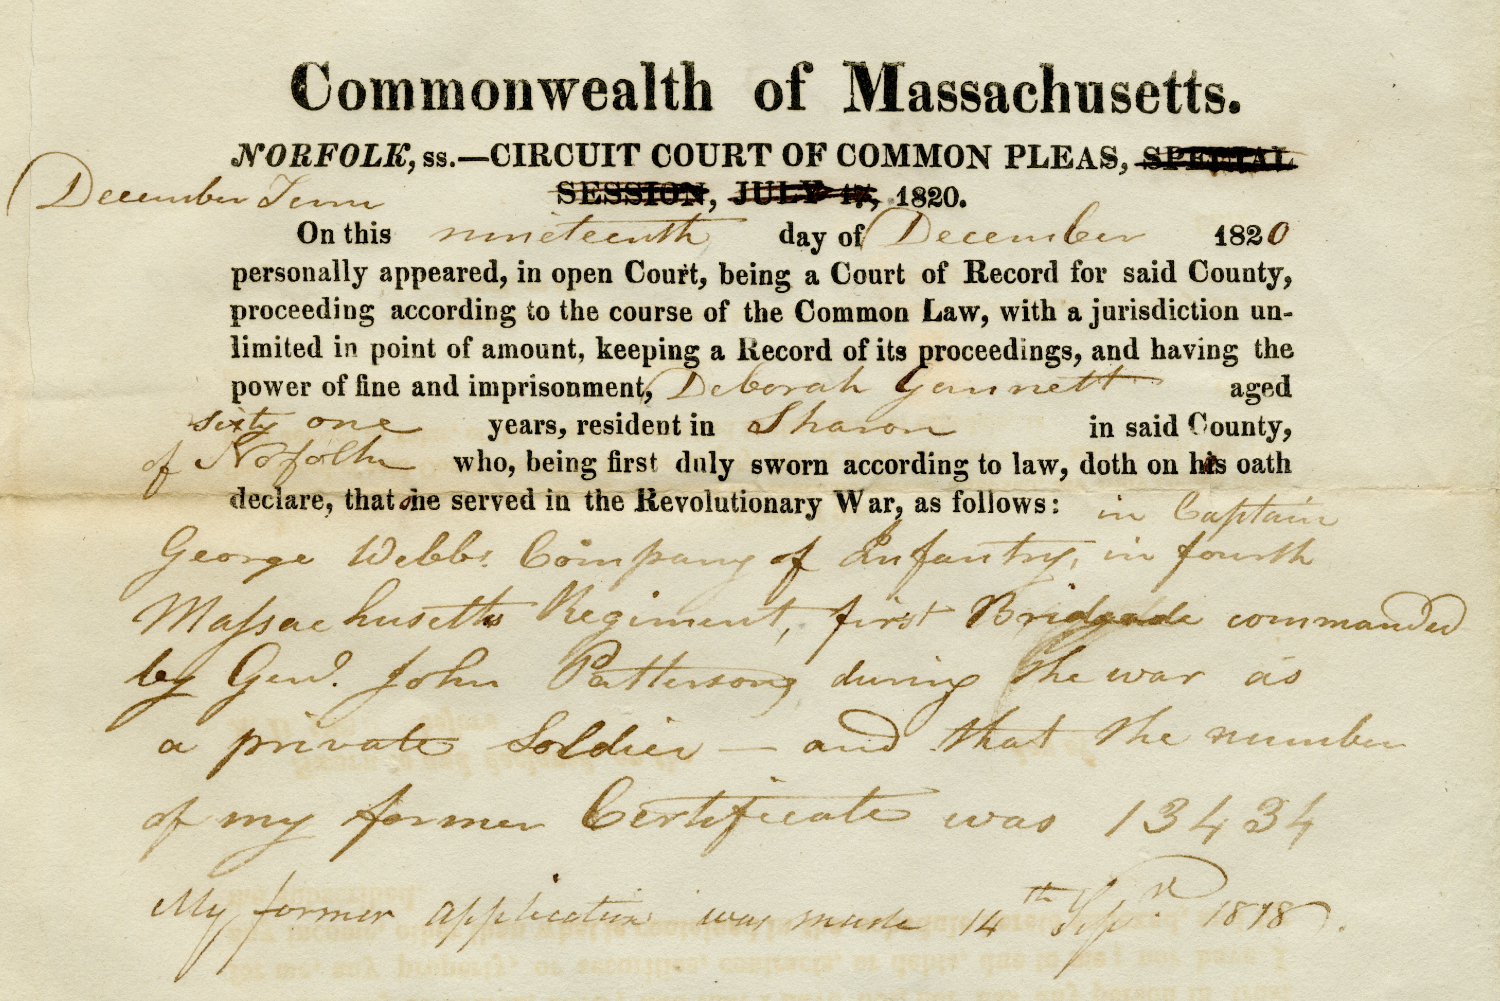 Commonwealth of Massachusetts.
NORFOLK, ss.—CIRCUIT COURT OF COMMON PLEAS, SPECIAL
December Term SESSION, JULY 17, 1820.
On this nineteenth day of December 1820
personally appeared, in open Court, being a Court of Record for said County,
proceeding according to the course of the Common Law, with a jurisdiction un-
limited in point of amount, keeping a Record of its proceedings, and having the
power of fine and imprisonment, Deborah Gannett aged
sixty one years, resident in Sharon in said County,
of Norfolk who, being first duly sworn according to law, doth on his oath
declare, that she served in the Revolutionary War, as follows: in Captain
George Webbs Company of Infantry, in fourth
Massachusetts Regiment, first Bridgade commanded
by Genl. John Patterson, during the war as
a private Soldier — and that the number
of my former Certificate was 13434
My former application was made 14th Sepr 1818.